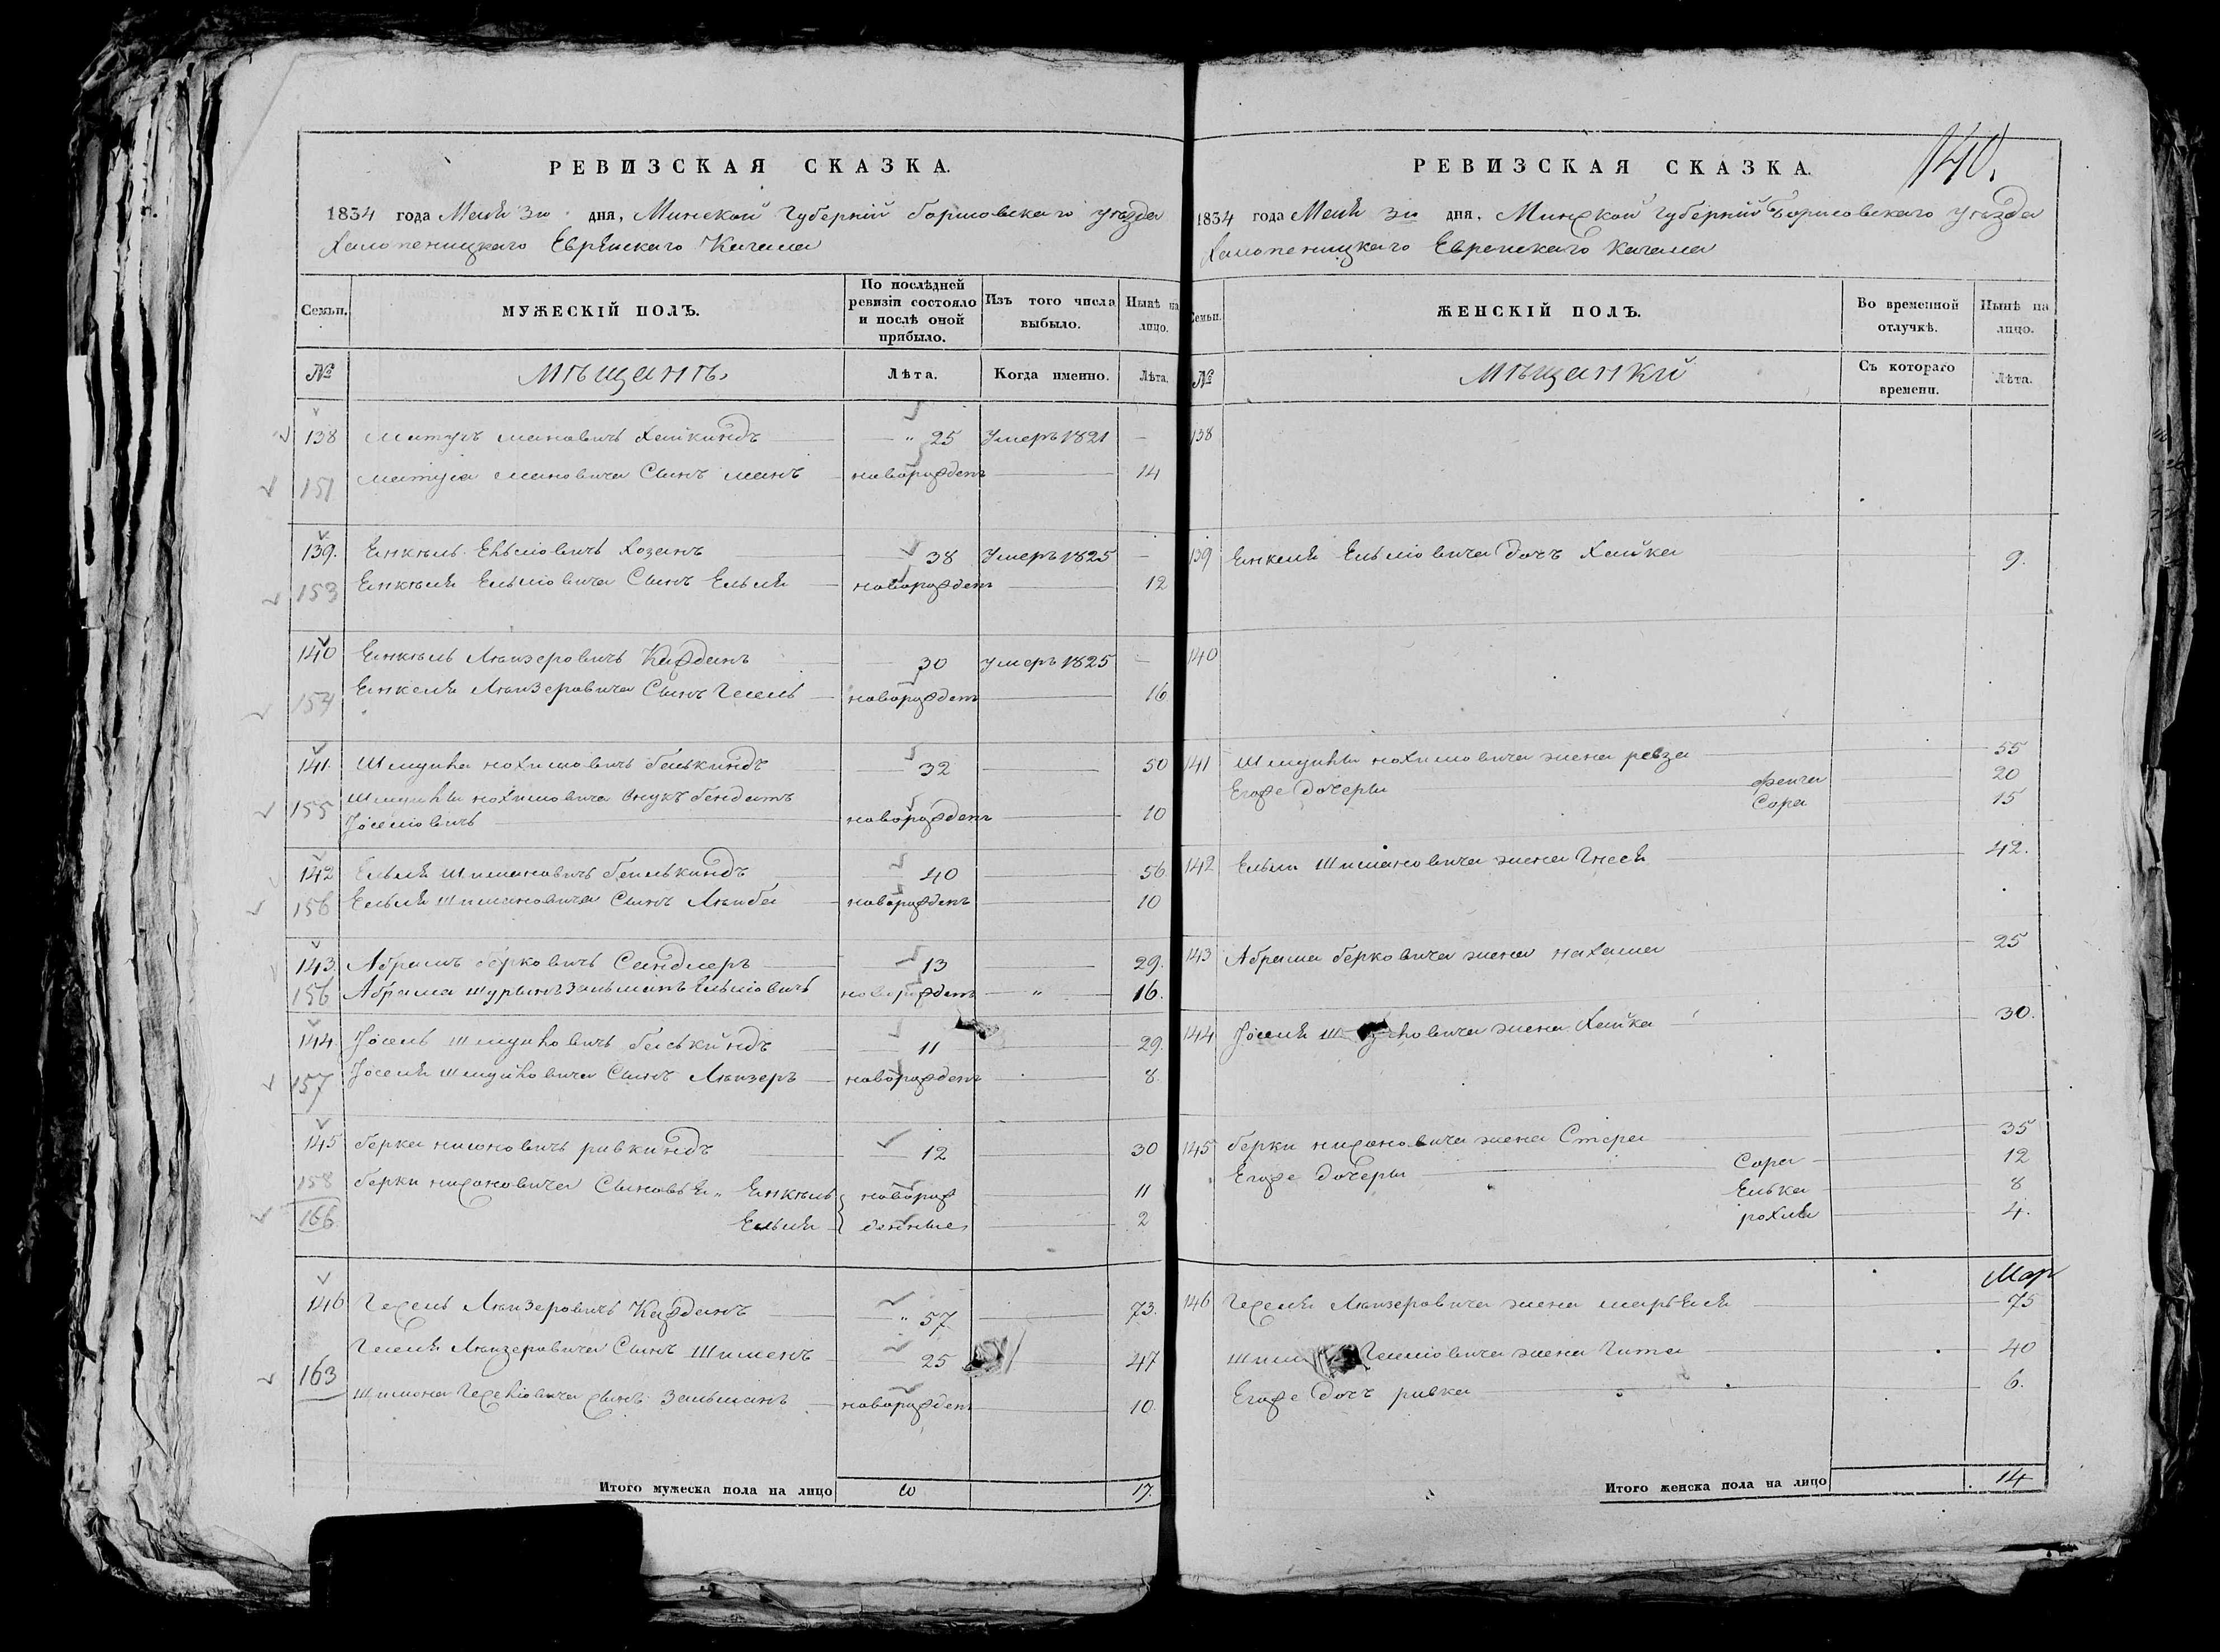 140.
РЕВИЗСКАЯ СКАЗКА.
1834 года Маия 3го дня, Минской Губерній Борисовского уѣзда
Холопеницкаго Еврейскаго Кагала
Семьи.
МУЖЕСКІЙ ПОЛЪ.
По послѣдней ревизіи состояло и послѣ оной прибыло.
Изъ того числа выбыло.
Нынѣ на лицо.
№
Мѣщанѣ
Лѣта.
Когда именно.
Лѣта.
138 Матусъ Мановичъ Хайкиндъ 25 Умеръ 1821 —
151 Матуса Мановича Сынъ Манъ новорожденъ 14
139. Енкѣль Ельіовичъ Хозанъ 38 Умеръ 1825 —
153 Енкѣля Ельіовича Сынъ Ельля новорожденъ 12
140 Енкѣль Лѣйзеровичъ Каждапъ 30 умеръ 1825 —
154 Енкеля Лѣйзеровича Сынъ Гесель новорожденъ 16
141. Шмуйла Нохимовичъ Белькиндъ 32 50
155 Шмуйлы Нохимовича внукъ Бендетъ
Іоселіовичъ новорожденъ 10
142 Ельля Шимановичъ Бейлькиндъ 40 56
156 Ельля Шимановича Сынъ Лейба новорожденъ 10
143. Абрамъ Берковичъ Сандлеръ 13 29.
156 Абрама Шурынъ Зальманъ Ельіовичъ новорожденъ " 16.
144 Іосель Шмуйловичъ Белькиндъ 11 29.
157 Іоселя Шмуйловича Сынъ Лѣйзеръ новорожденъ 8.
145 Берка Нисоновичъ Ривкиндъ 12 30
158 Берки Нисоновича Сыновья Енкѣль новорож 11
166 Ельля денные 2
146 Гесель Лѣйзеровичъ Каждапъ 57 73.
Геселя Лѣйзеровича Сынъ Шименъ 25 47
163
Шимона Геселіовича сынъ Зальманъ новорожденъ 10.
Итого мужеска пола на лицо 17.
РЕВИЗСКАЯ СКАЗКА.
1834 года Маия 3го дня, Минской Губерній Борисовскаго уѣзда
Холопеницкаго Еврейскаго Кагала
Семьи.
ЖЕНСКІЙ ПОЛЪ.
Во временной отлучкѣ.
Нынѣ на лицо.
№
Мѣщанкй
Съ котораго времени.
Лѣта.
138
139 Енкеля Ельіовича дочъ Хайка 9.
140
141 Шмуйлы Нохимовича жена Ревза 55
Егоже дочеры Фейга 20
Сора 15
142 Ельли Шимановича жена Гнеся 42.
143 Абрама Берковича жена Нахама 25
144 Іоселя Шмуйловича жена Хайка 30.
145 Берки Нисоновича жена Стера 35
Егоже дочеры Сора 12
Елька 8
Рохля 4.
Мар
146 Геселя Лѣйзеровича жена Марьяся 75
Геселіовича жена Гита 40
Егоже дочъ Ривка 6.
Итого женска пола на лицо 14